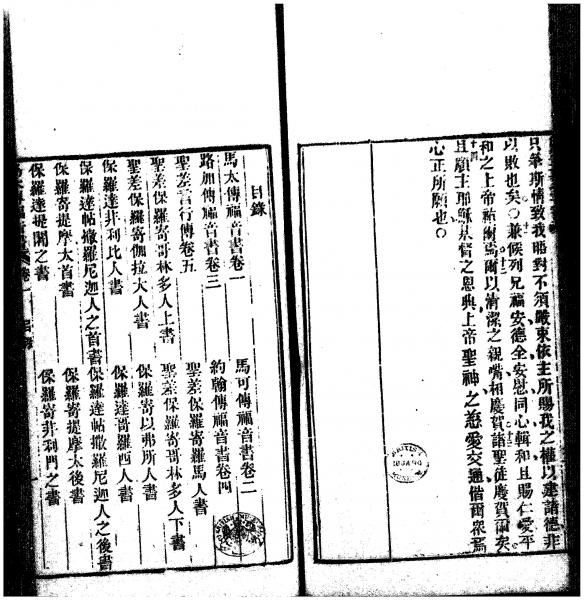 只筆斯情致我晤對不須嚴束依主所賜我之權以建諸德非
以敗也矣○兼候列兄福安德全安慰同心輯和且賜仁愛平
和之上帝祐爾焉爾以清潔之親嘴相慶賀諸聖徒慶賀爾矣
十四
且願主耶穌基督之恩典上帝聖神之慈愛交通偕爾眾焉
心正所願也○
目錄
馬太傳福音書卷一 馬可傳福音書卷二
路加傳福音書卷三 約翰傳福音書卷四
聖差言行傳卷五 聖差保羅寄羅馬人書
聖差保羅寄哥林多人上書 聖差保羅寄哥林多人下書
聖差保羅寄伽拉大人書 保羅寄以弗所人書
保羅達非利比人書 保羅達哥羅西人書
保羅達帖撒羅尼迦人之首書 保羅達帖撒羅尼迦人之後書
保羅寄提摩太首書 保羅寄提摩太後書
保羅達提鬧之書 保羅寄非利門之書